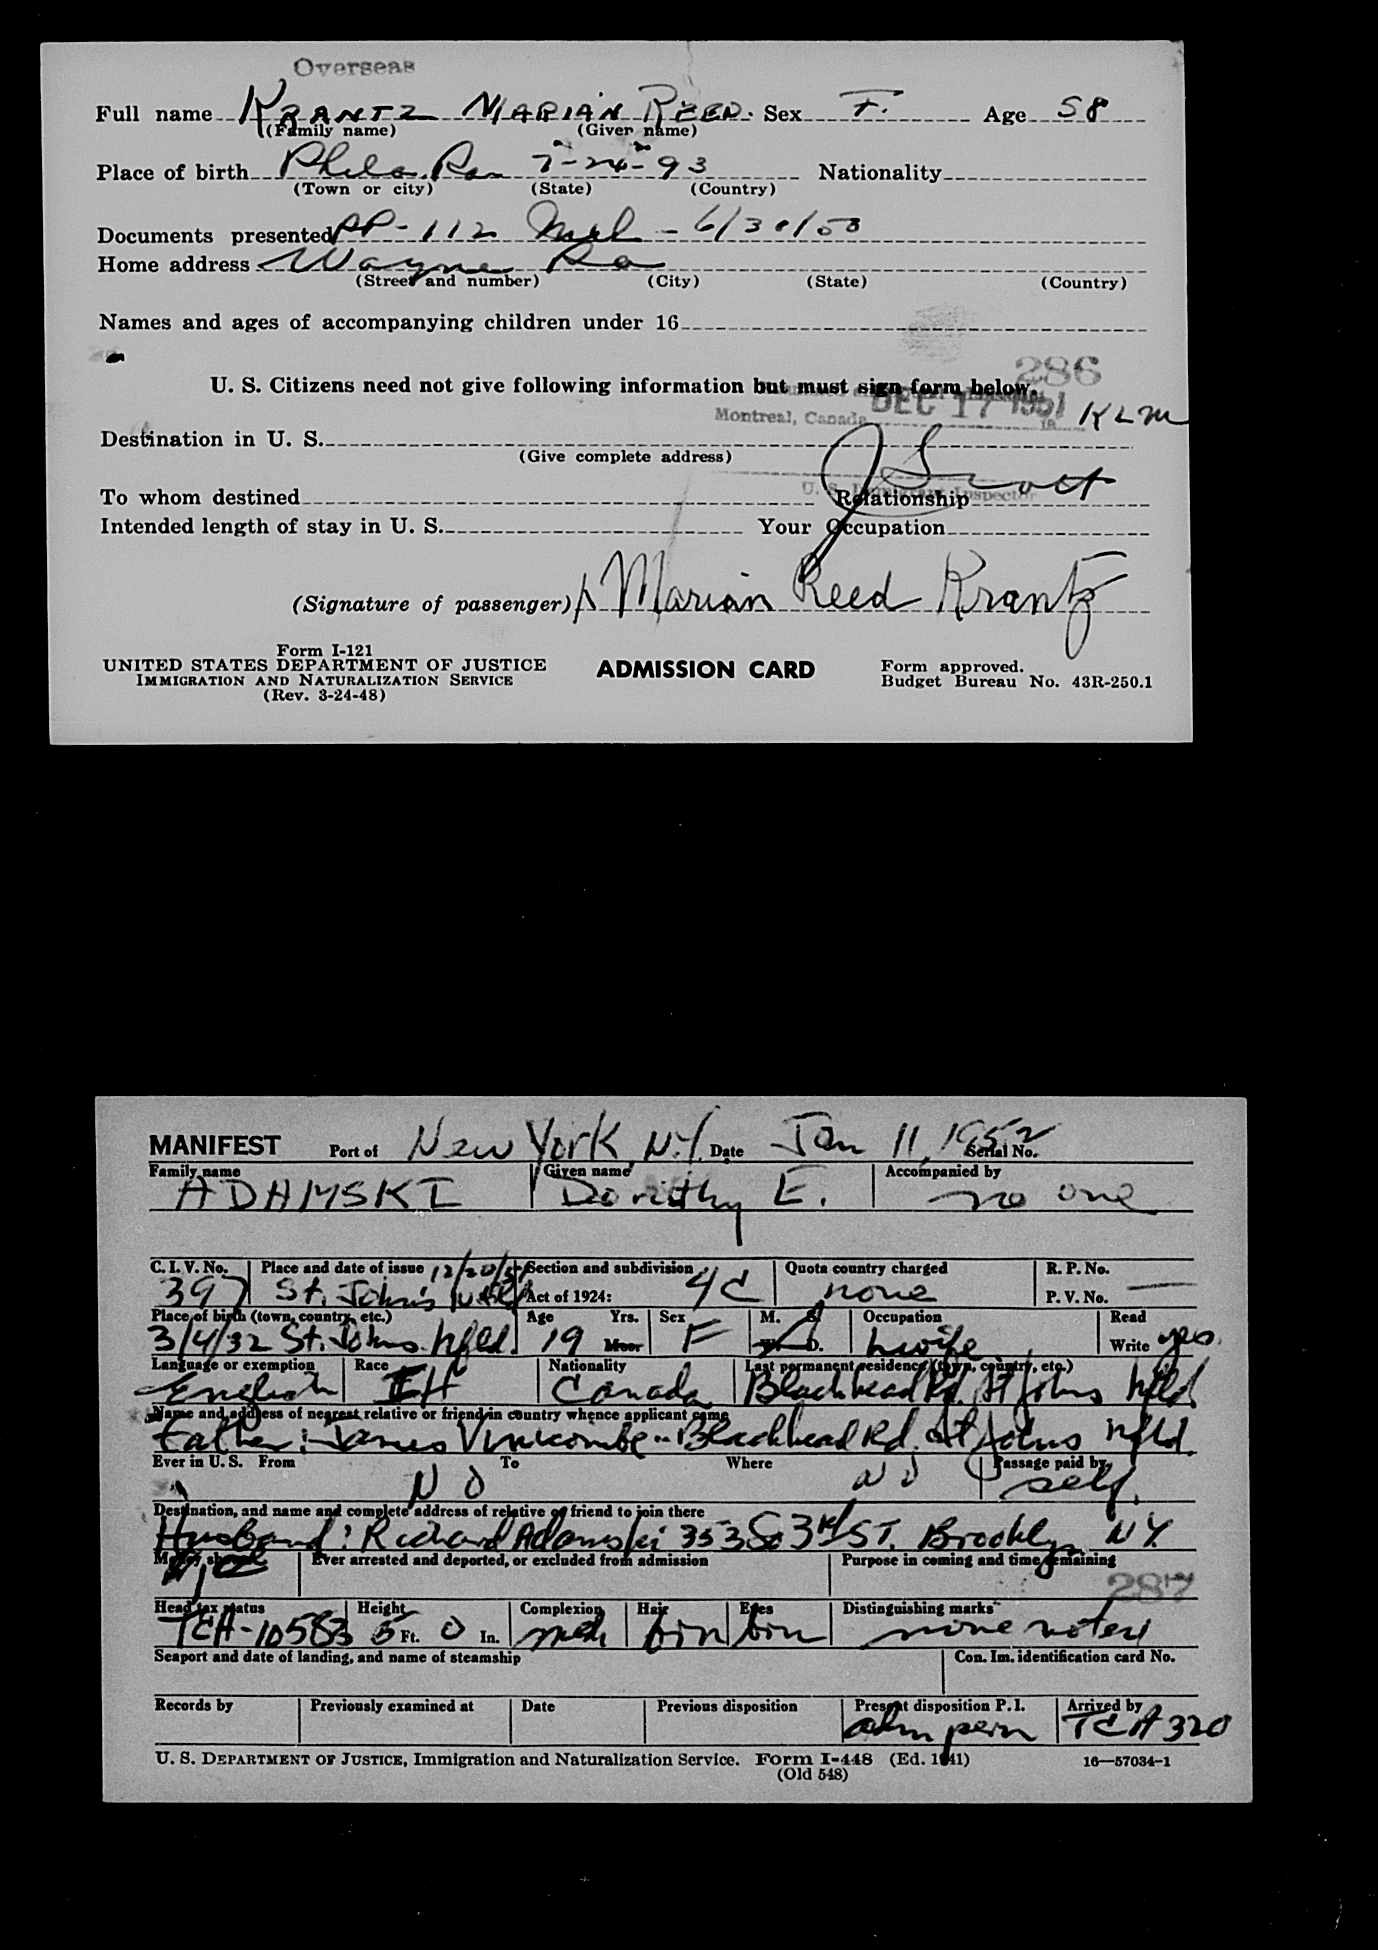 Overseas
Full name KRANTZ MARIAN REED. Sex F. Age 58
(Family name) (Given name)
Place of birth Phila. Pa 7-24-93 Nationality
(Town or city) (State) (Country)
Documents presented PP-112 - 6/30/50
Home address Wayne Pa
(Street and number) (City) (State) (Country)
Names and ages of accompanying children under 16
286
U. S. Citizens need not give following information but must sign form below.
Montreal, Canada DEC 17 1951 KLM
Destination in U. S.
(Give complete address)
U. S. Immigrant Inspector
To whom destined Relationship
Intended length of stay in U. S. Your Occupation
(Signature of passenger) Marian Reed Krantz
Form I-121
UNITED STATES DEPARTMENT OF JUSTICE
IMMIGRATION AND NATURALIZATION SERVICE
(Rev. 3-24-48)
ADMISSION CARD
Form approved.
Budget Bureau No. 43R-250.1
MANIFEST Port of New York N.Y. Date Jan 11, 1952 Serial No.
Family name Given name Accompanied by
ADAMSKI Dorithy E. no one
C. I. V. No. Place and date of issue 12/20/51 Section and subdivision Quota country charged R. P. No.
397 St. John's Nfld Act of 1924: 4C none P. V. No. —
Place of birth (town, country, etc.) Age Yrs. Sex M. S. Occupation Read
3/4/32 St. Johns. Nfld. 19 Mos. F W. D. hwife Write yes
Language or exemption Race Nationality Last permanent residence (town, country, etc.)
English Canada Blackhead Rd. St Johns Nfld
Name and address of nearest relative or friend in country whence applicant came
Father: James Vinicombe - Blackhead Rd. St Johns Nfld.
Ever in U. S. From To Where Passage paid by
NO NO self.
Destination, and name and complete address of relative or friend to join there
Husband: Richard Adamski 353 So 3rd ST. Brooklyn NY.
Money shown Ever arrested and deported, or excluded from admission Purpose in coming and time remaining
287
Head tax status Height Complexion Hair Eyes Distinguishing marks
TCA-10583 5 Ft. 0 In. med brn brn none noted
Seaport and date of landing, and name of steamship Con. Im. identification card No.
Records by Previously examined at Date Previous disposition Present disposition P. I. Arrived by
adm perm TCA 320
U. S. DEPARTMENT OF JUSTICE, Immigration and Naturalization Service. Form I-448 (Ed. 1941) 16—57034-1
(Old 548)